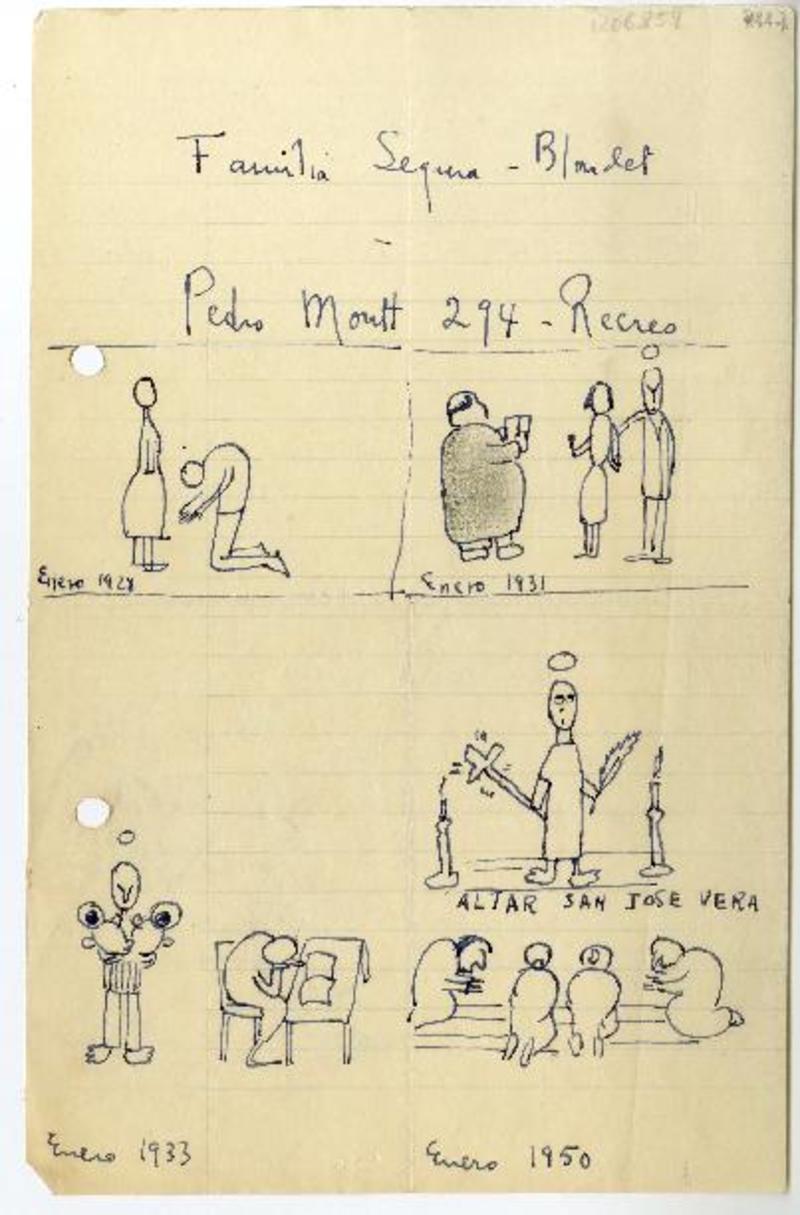 Familia Segura - Blondet
Pedro Montt 294 - Recreo
Enero 1928
Enero 1931
ALTAR SAN JOSE VERA
Enero 1933
Enero 1950